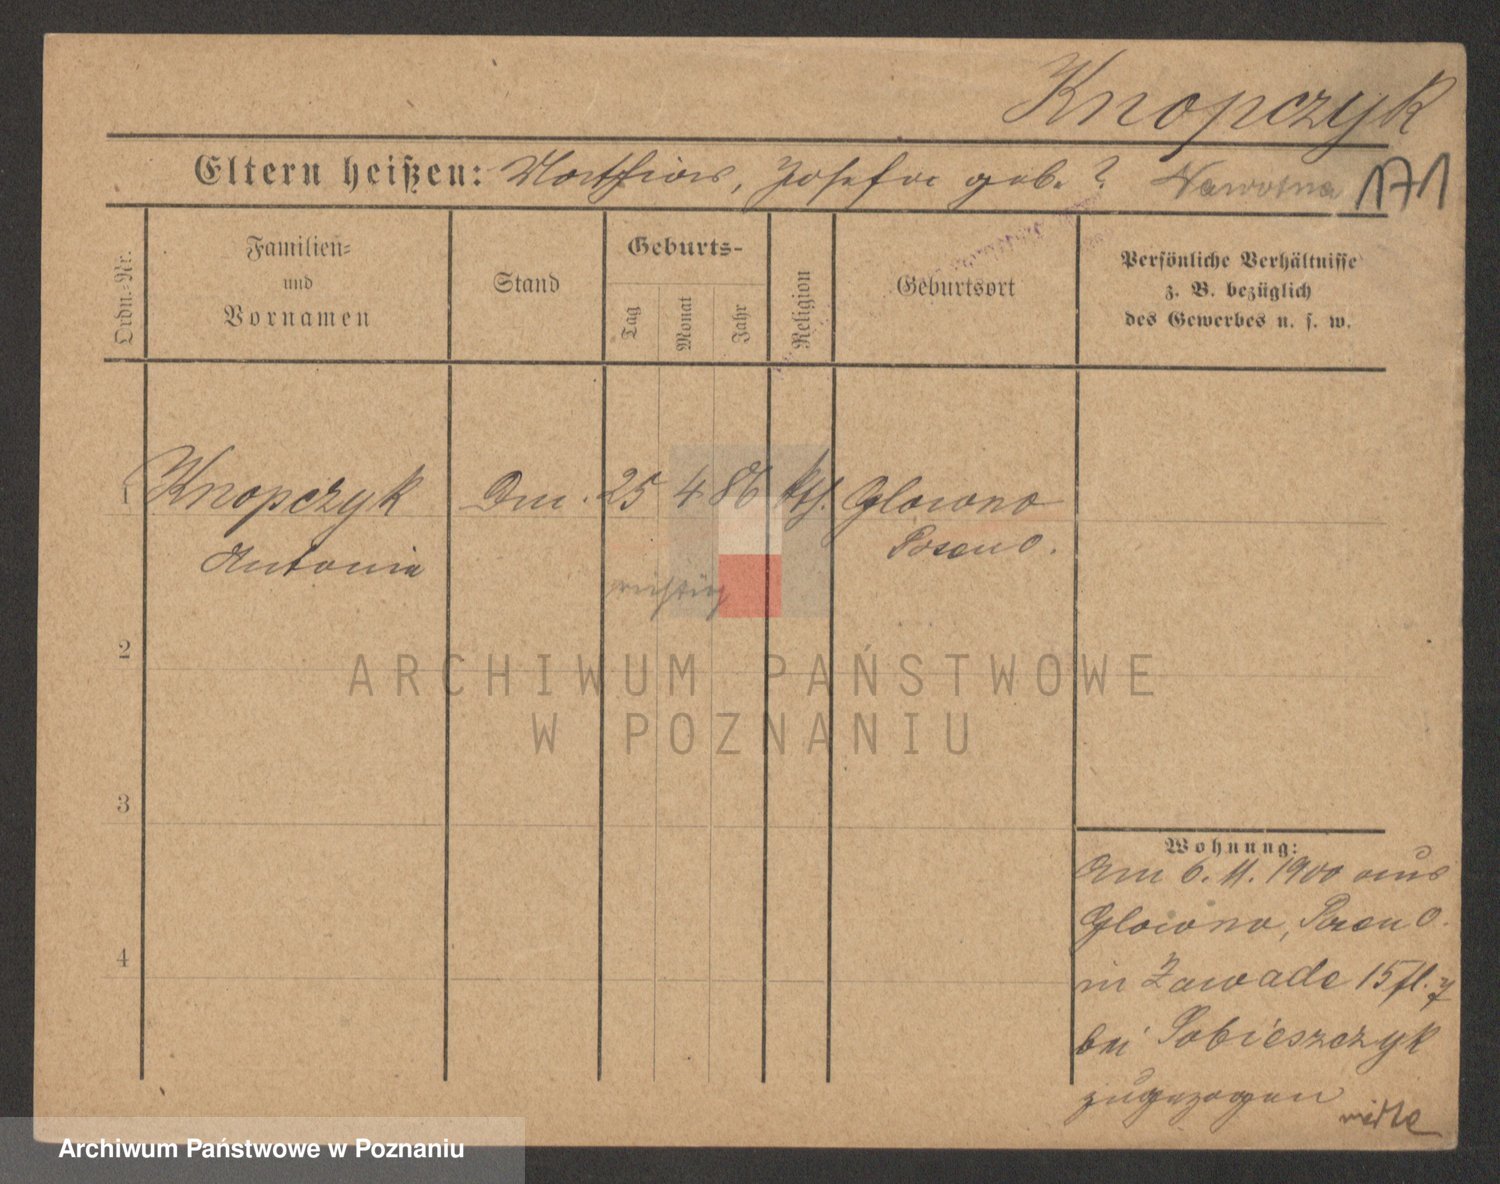 Knopczyk
Eltern heißen: Mathias, Josefa geb. ? Nawotna 171
Ordn.-Nr.
Familien-
und
Vornamen
Stand
Geburts-
Tag
Monat
Jahr
Religion
Geburtsort
Persönliche Verhältnisse
z. B. bezüglich
des Gewerbes u. s. w.
1 Knopczyk 25 4 86 kth. Glowno
Antonie Posen O.
richtig
2
3
4
Wohnung:
Am 6. 11. 1900 aus
Glowno, Posen O.
in Zawade 15
bei Sobieszczyk
zugezogen
ARCHIWUM PAŃSTWOWE
W POZNANIU
Archiwum Państwowe w Poznaniu